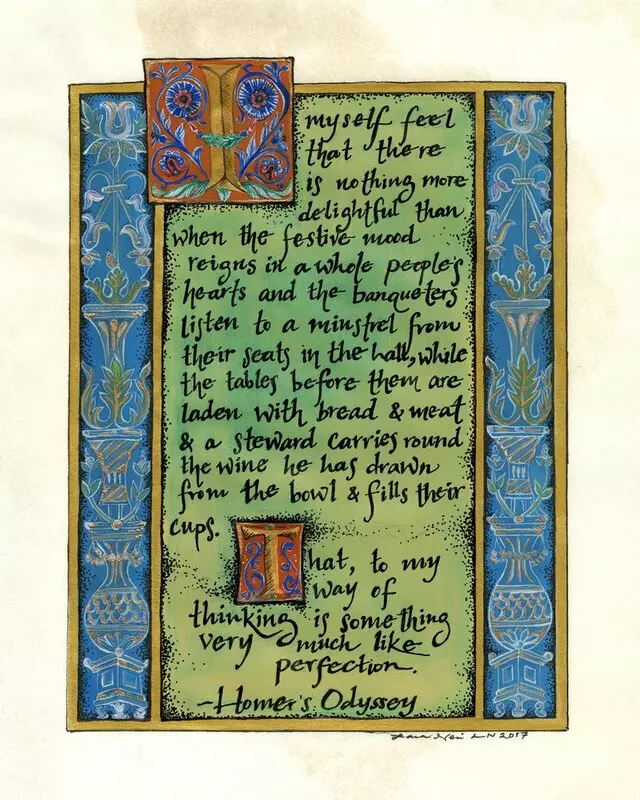 I myself feel
that there
is nothing more
delightful than
when the festive mood
reigns in a whole people's
hearts and the banqueters
listen to a minstrel from
their seats in the hall, while
the tables before them are
laden with bread & meat
& a steward carries round
the wine he has drawn
from the bowl & fills their
cups.
That, to my
way of
thinking is something
very much like
perfection.
-Homer's Odyssey
2017